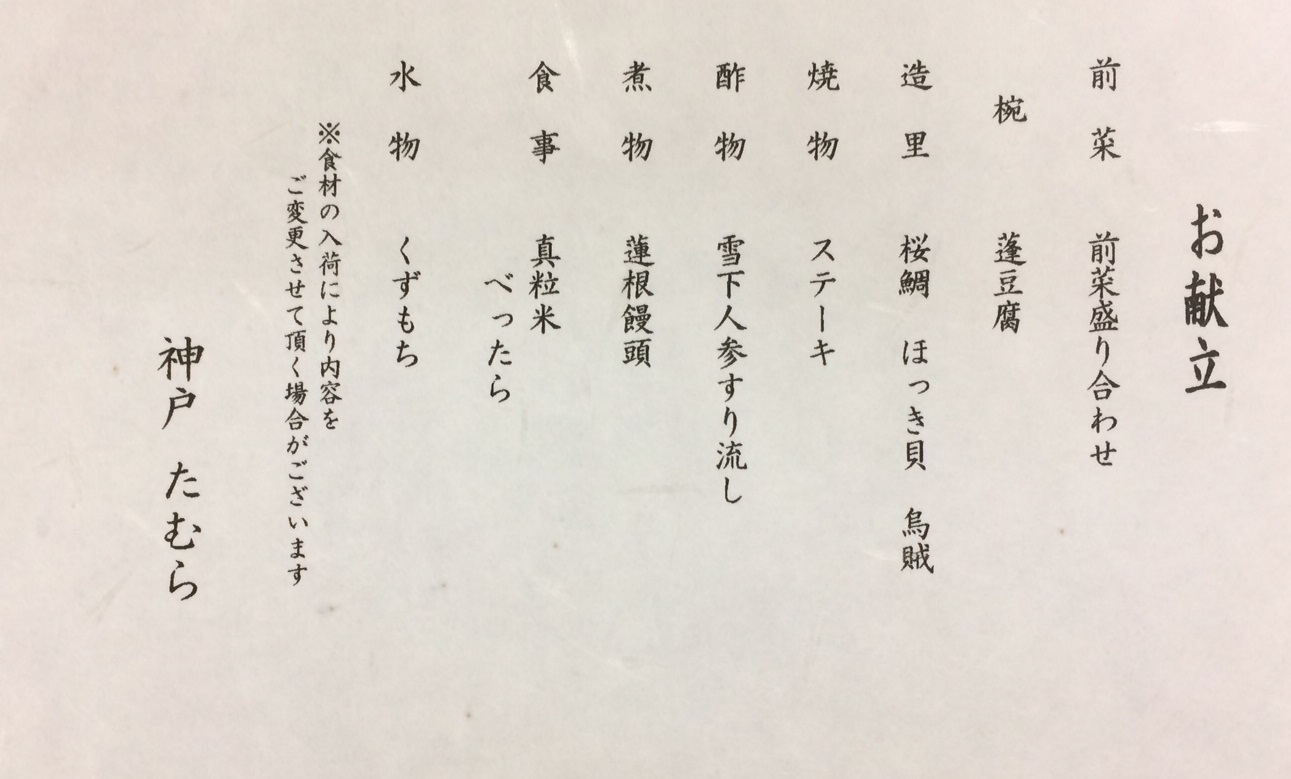 お献立
前菜 前菜盛り合わせ
椀 蓬豆腐
造里 桜鯛 ほっき貝 烏賊
焼物 ステーキ
酢物 雪下人参すり流し
煮物 蓮根饅頭
食事 真粒米
べったら
水物 くずもち
※食材の入荷により内容を
ご変更させて頂く場合がございます
神戸 たむら